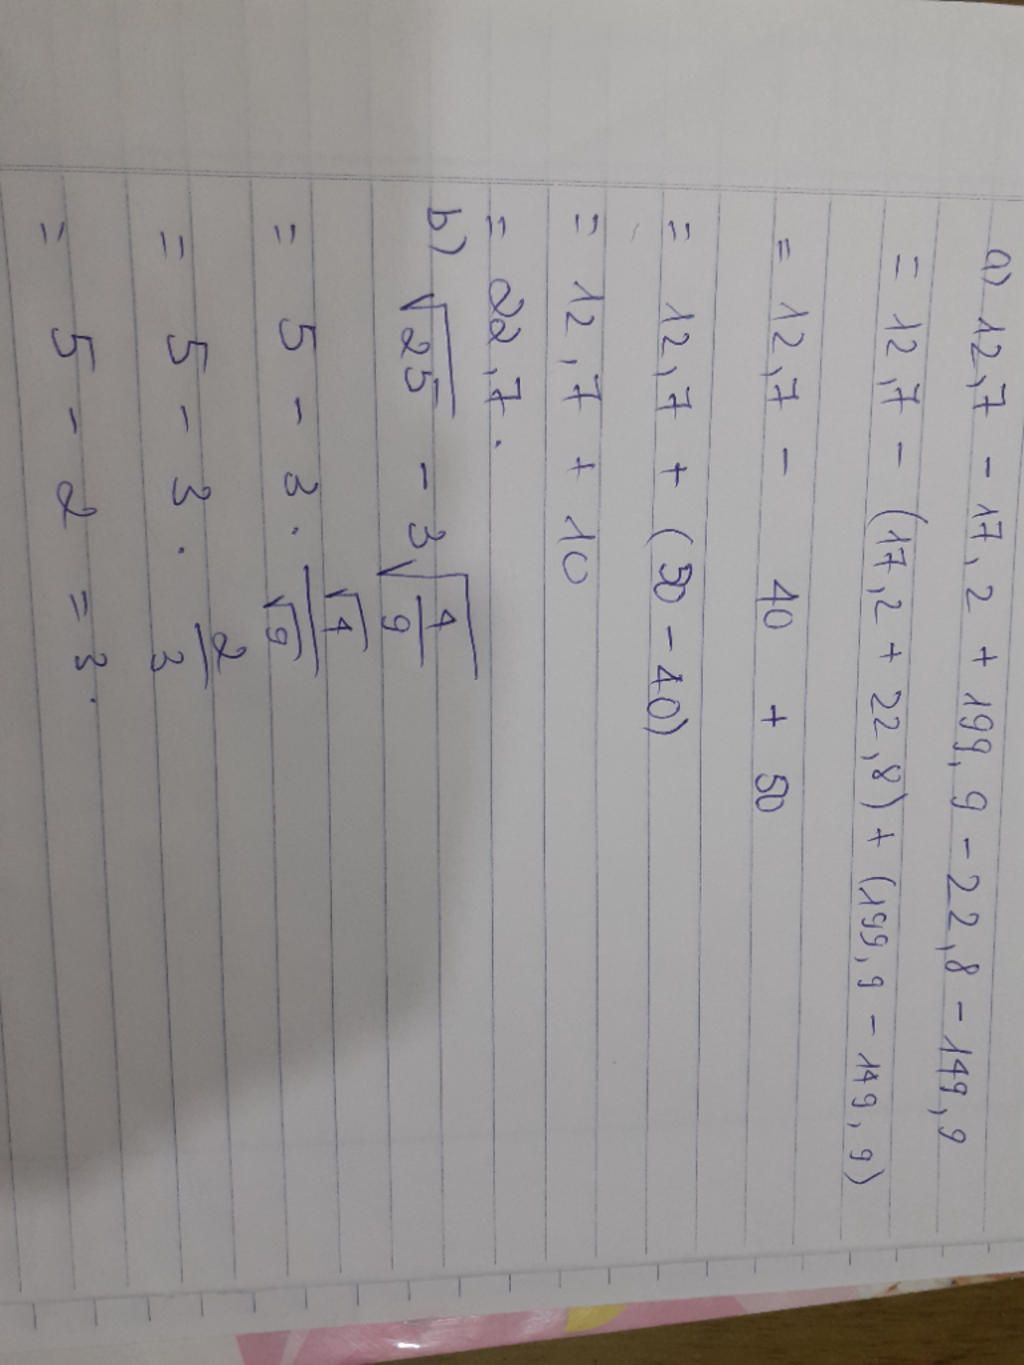 a) 12,7 - 17,2 + 199,9 - 22,8 - 149,9
= 12,7 - (17,2 + 22,8) + (199,9 - 149,9)
= 12,7 - 40 + 50
= 12,7 + (50 - 40)
= 12,7 + 10
= 22,7.
b) √25 - 3√(4/9)
= 5 - 3 . √4/√9
= 5 - 3 . 2/3
= 5 - 2 = 3.